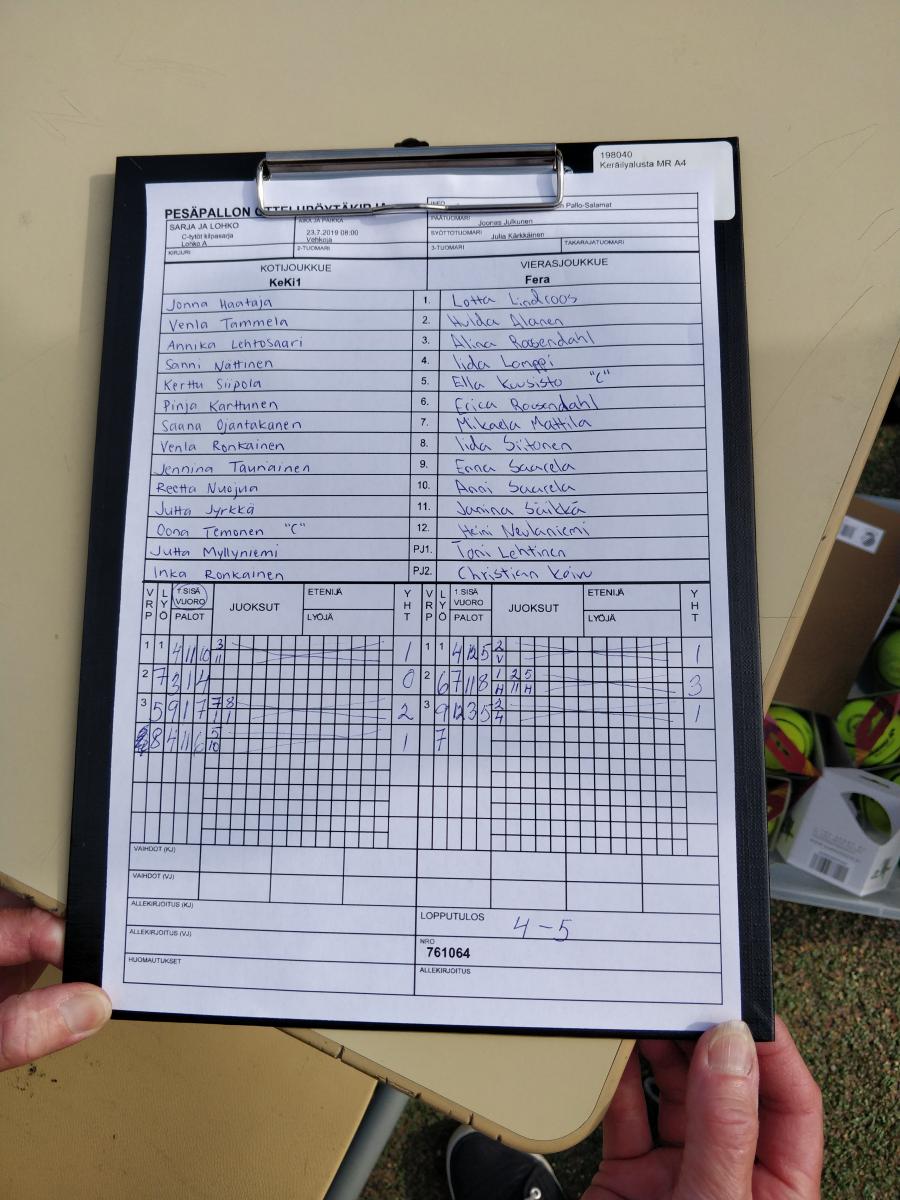 198040
Keräilyalusta MR A4
PESÄPALLON OTTELUPÖYTÄKIRJA
INFO Pallo-Salamat
SARJA JA LOHKO
C-tytöt kilpasarja
Lohko A
KIRJURI
AIKA JA PAIKKA
23.7.2019 08:00
Vehkoja
2-TUOMARI
PÄÄTUOMARI Joonas Julkunen
SYÖTTÖTUOMARI Julia Kärkkäinen
3-TUOMARI TAKARAJATUOMARI
KOTIJOUKKUE VIERASJOUKKUE
KeKi1 Fera
Jonna Haataja 1. Lotta Lindroos
Venla Tammela 2. Hulda Alanen
Annika Lehtosaari 3. Alina Roosendahl
Sanni Nättinen 4. Iida Lomppi
Kerttu Siipola 5. Ella Kuusisto "C"
Pinja Karttunen 6. Erica Roosendahl
Saana Ojantakanen 7. Mikaela Mattila
Venla Ronkainen 8. Iida Siitonen
Jennina Taunainen 9. Enna Saarela
Reetta Nuojua 10. Anni Saarela
Jutta Jyrkkä 11. Janina Säikkä
Oona Temonen "C" 12. Heini Neulaniemi
Jutta Myllyniemi PJ1. Toni Lehtinen
Inka Ronkainen PJ2. Christian Koivu
VRP LYÖ 1.SISÄ VUORO PALOT JUOKSUT ETENIJÄ LYÖJÄ YHT VRP LYÖ 1.SISÄ VUORO PALOT JUOKSUT ETENIJÄ LYÖJÄ YHT
1 1 4 11 10 3 11 1 1 1 4 12 5 2 V 1
2 7 3 1 4 0 2 6 7 11 8 1 2 5 H 11 H 3
3 5 9 1 7 7 8 1 1 2 3 9 12 3 5 2 4 1
8 4 11 6 5 10 1 7
VAIHDOT (KJ)
VAIHDOT (VJ)
ALLEKIRJOITUS (KJ)
LOPPUTULOS 4-5
ALLEKIRJOITUS (VJ)
NRO
761064
HUOMAUTUKSET
ALLEKIRJOITUS